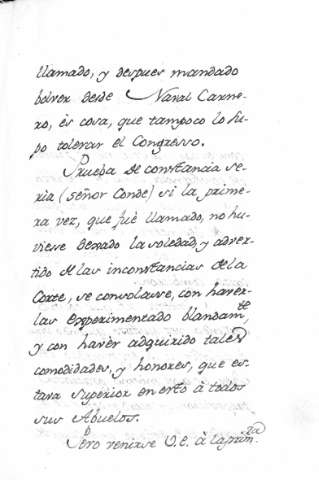 llamado, y despues mandado
bolver desde Naval Carne-
ro, ès cosa, que tampoco lo su-
po tolerar el Congresso.
Prueba de constancia se-
rìa (señor Conde) si la prime-
ra vez, que fuè llamado, no hu-
viese dexado la soledad, y adver-
tido de las inconstancias de la
Corte, se consolasse, con haver-
las experimentado blandam.te
y con havèr adquirido tales
comodidades, y honores, que es-
tava superior en esto à todos
sus Abuelos.
Pero venirse V.E. à la prim.ra